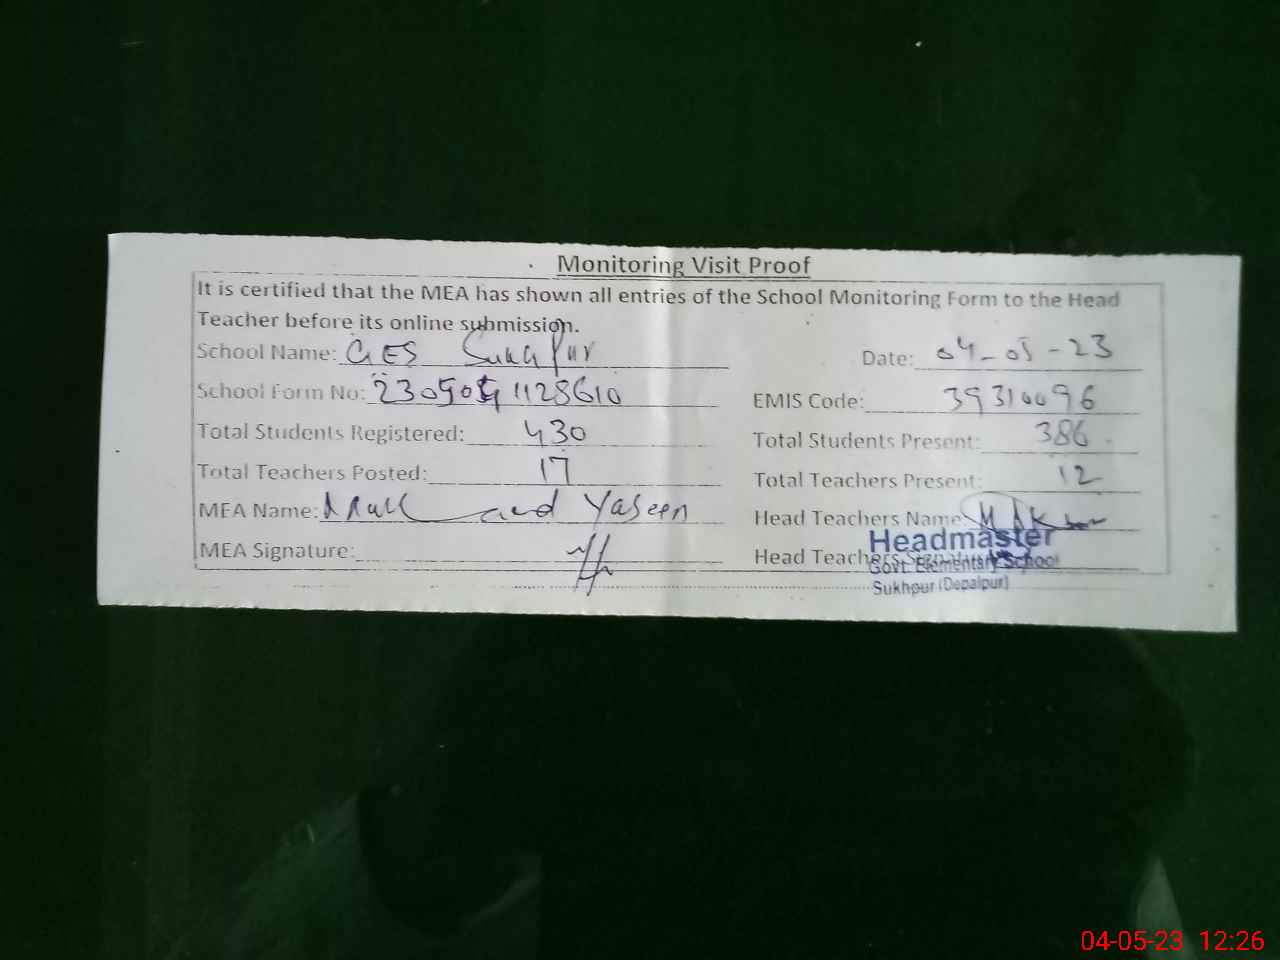 Monitoring Visit Proof
It is certified that the MEA has shown all entries of the School Monitoring Form to the Head
Teacher before its online submission.
School Name: GES Sukhpur Date: 04-05-23
School Form No: EMIS Code: 39310096
Total Students Registered: 430 Total Students Present: 386
Total Teachers Posted: 17 Total Teachers Present: 12
MEA Name: Yaseen Head Teachers Name: M Akbar
MEA Signature: Head Teachers
Headmaster
Govt Elementary School
Sukhpur (Depalpur)
04-05-23 12:26